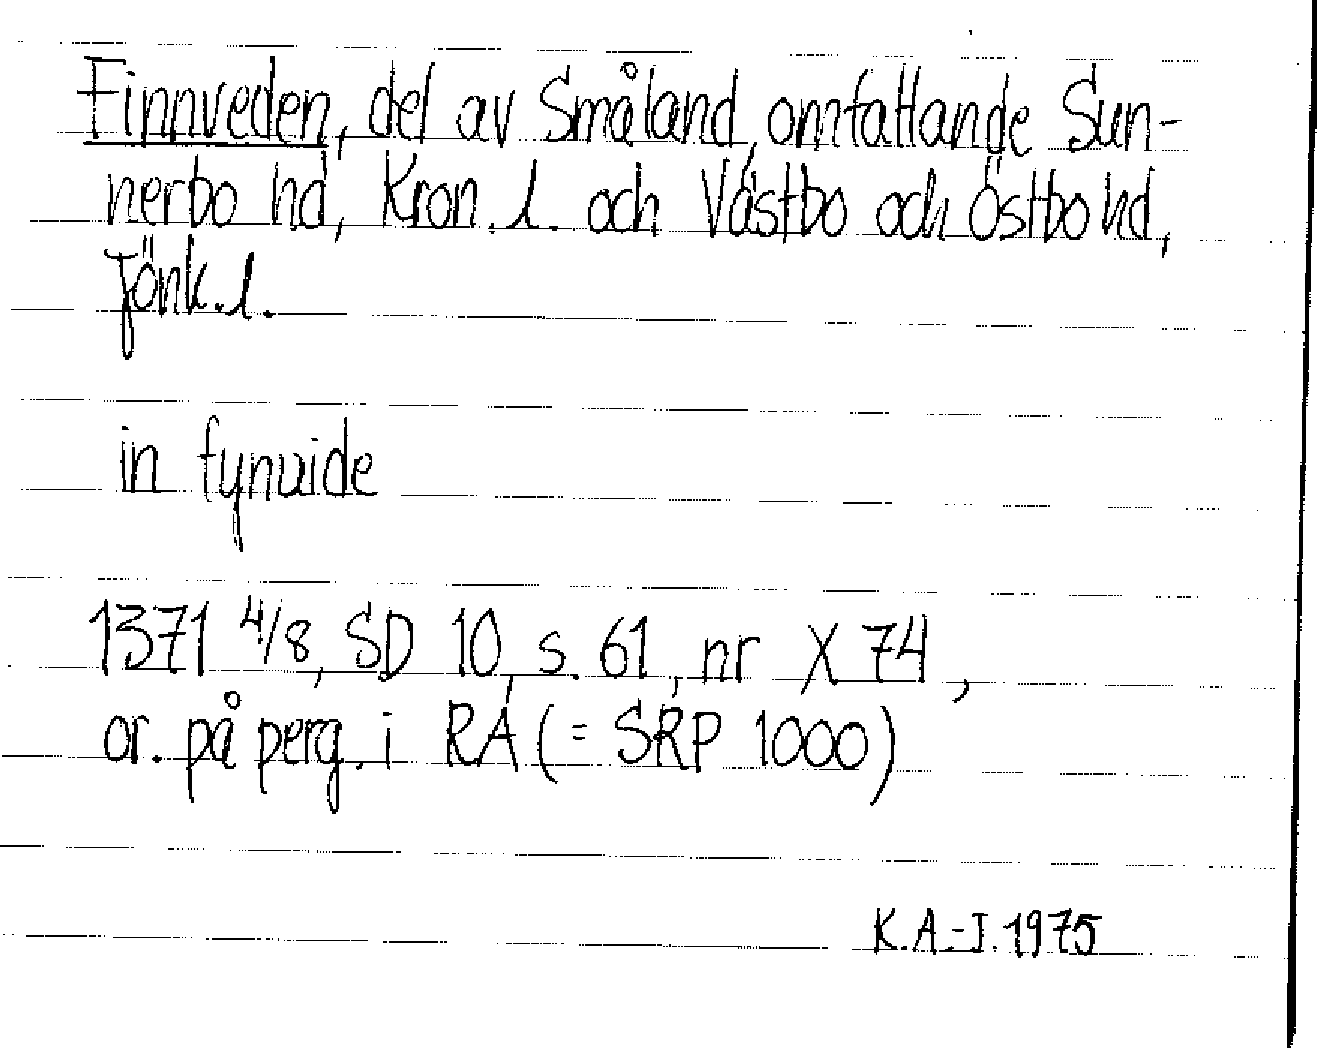 Finnveden, del av Småland, omfattande Sun-
nerbo hd, Kron. l. och Västbo och Östbo hd,
Jönk. l.
in fynuide
1371 4/8, SD 10, s. 61, nr X 74,
or. på perg. i RA (= SRP 1000)
K.A.-J. 1975